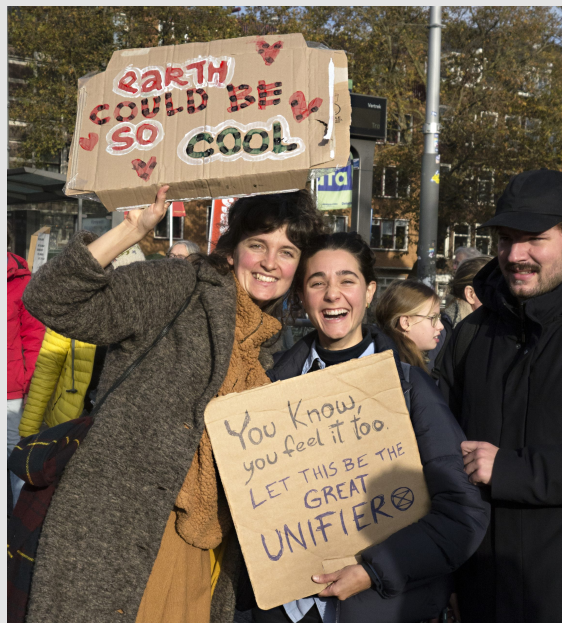 EARTH
COULD BE
SO COOL
You Know,
you feel it too.
LET THIS BE THE
GREAT
UNIFIER